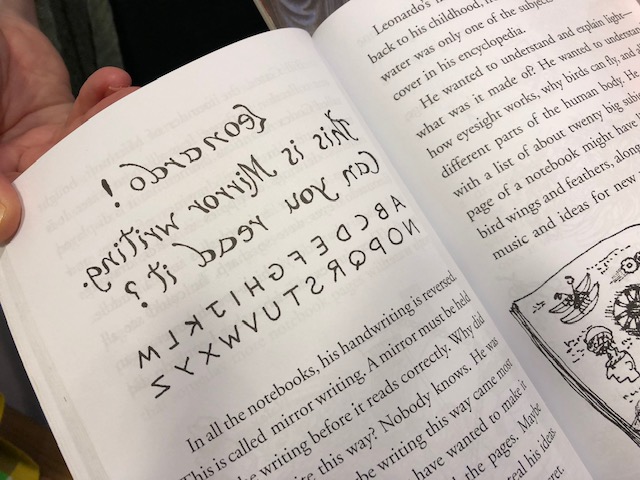 Leonardo!
This is Mirror writing.
Can you read it?
A B C D E F G H I J K L M
N O P Q R S T U V W X Y Z
In all the notebooks, his handwriting is reversed.
This is called mirror writing. A mirror must be held
writing before it reads correctly. Why did
this way? Nobody knows. He was
writing this way came most
have wanted to make it
the pages. Maybe
his ideas.
Leonardo's
back to his childhood,
water was only one of the subjects
cover in his encyclopedia.
He wanted to understand and explain light—
what was it made of? He wanted to
how eyesight works, why birds can fly, and
different parts of the human body. He
with a list of about twenty big
page of a notebook might have
bird wings and feathers, along
music and ideas for new